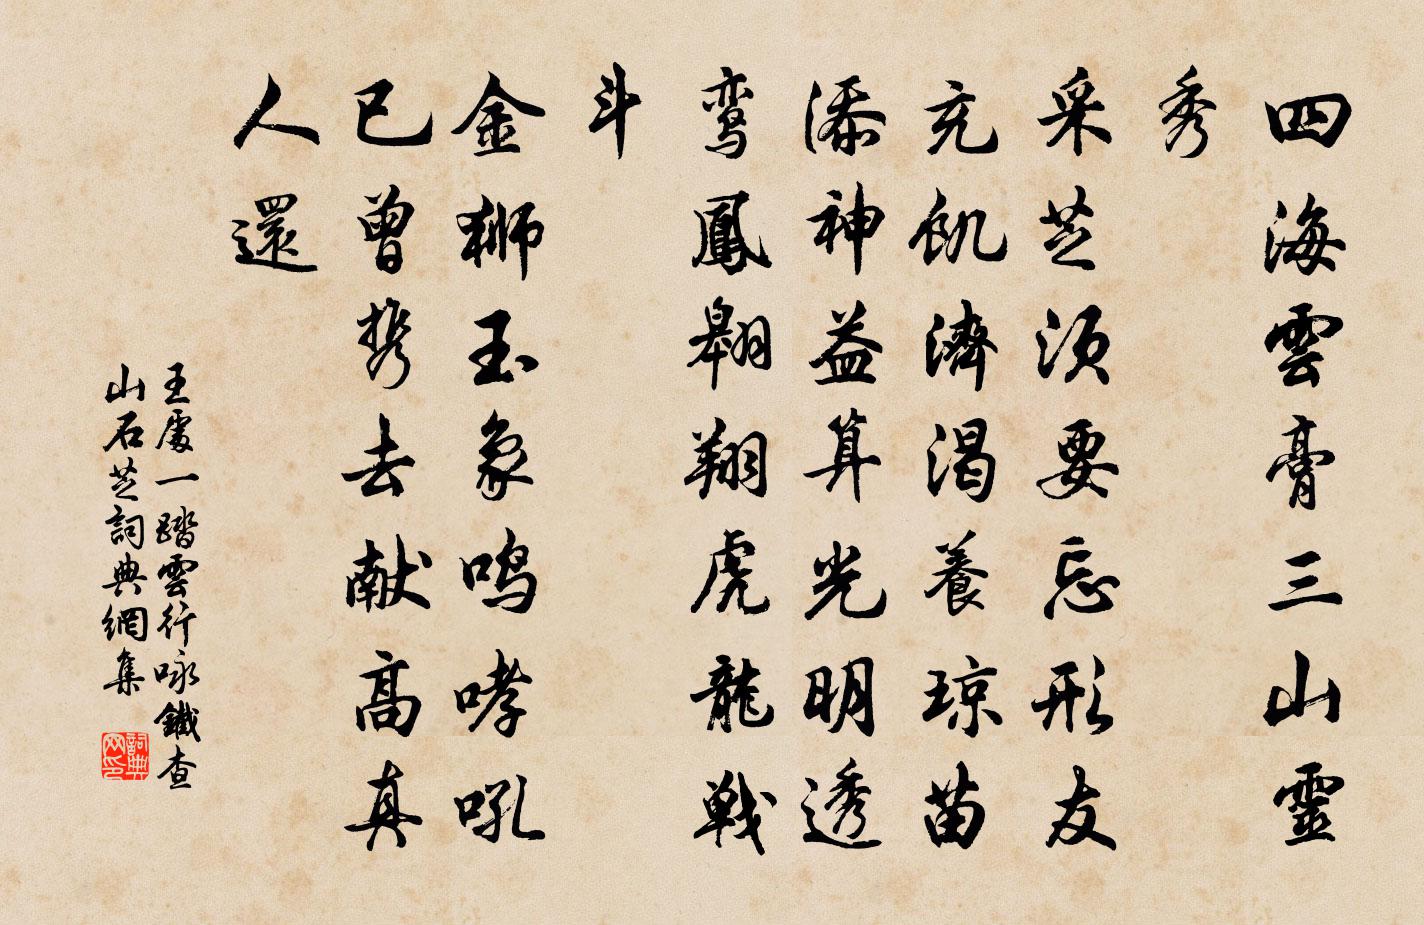 四海雲膏三山靈
秀
采芝須要忘形友
充飢濟渴養琼苗
添神益算光明透
鸾鳳翱翔虎龍戰
斗
金狮玉象鳴哮吼
已曾携去献高真
人還
王處一踏雲行咏鐵查
山石芝詞典網集
詞典网印